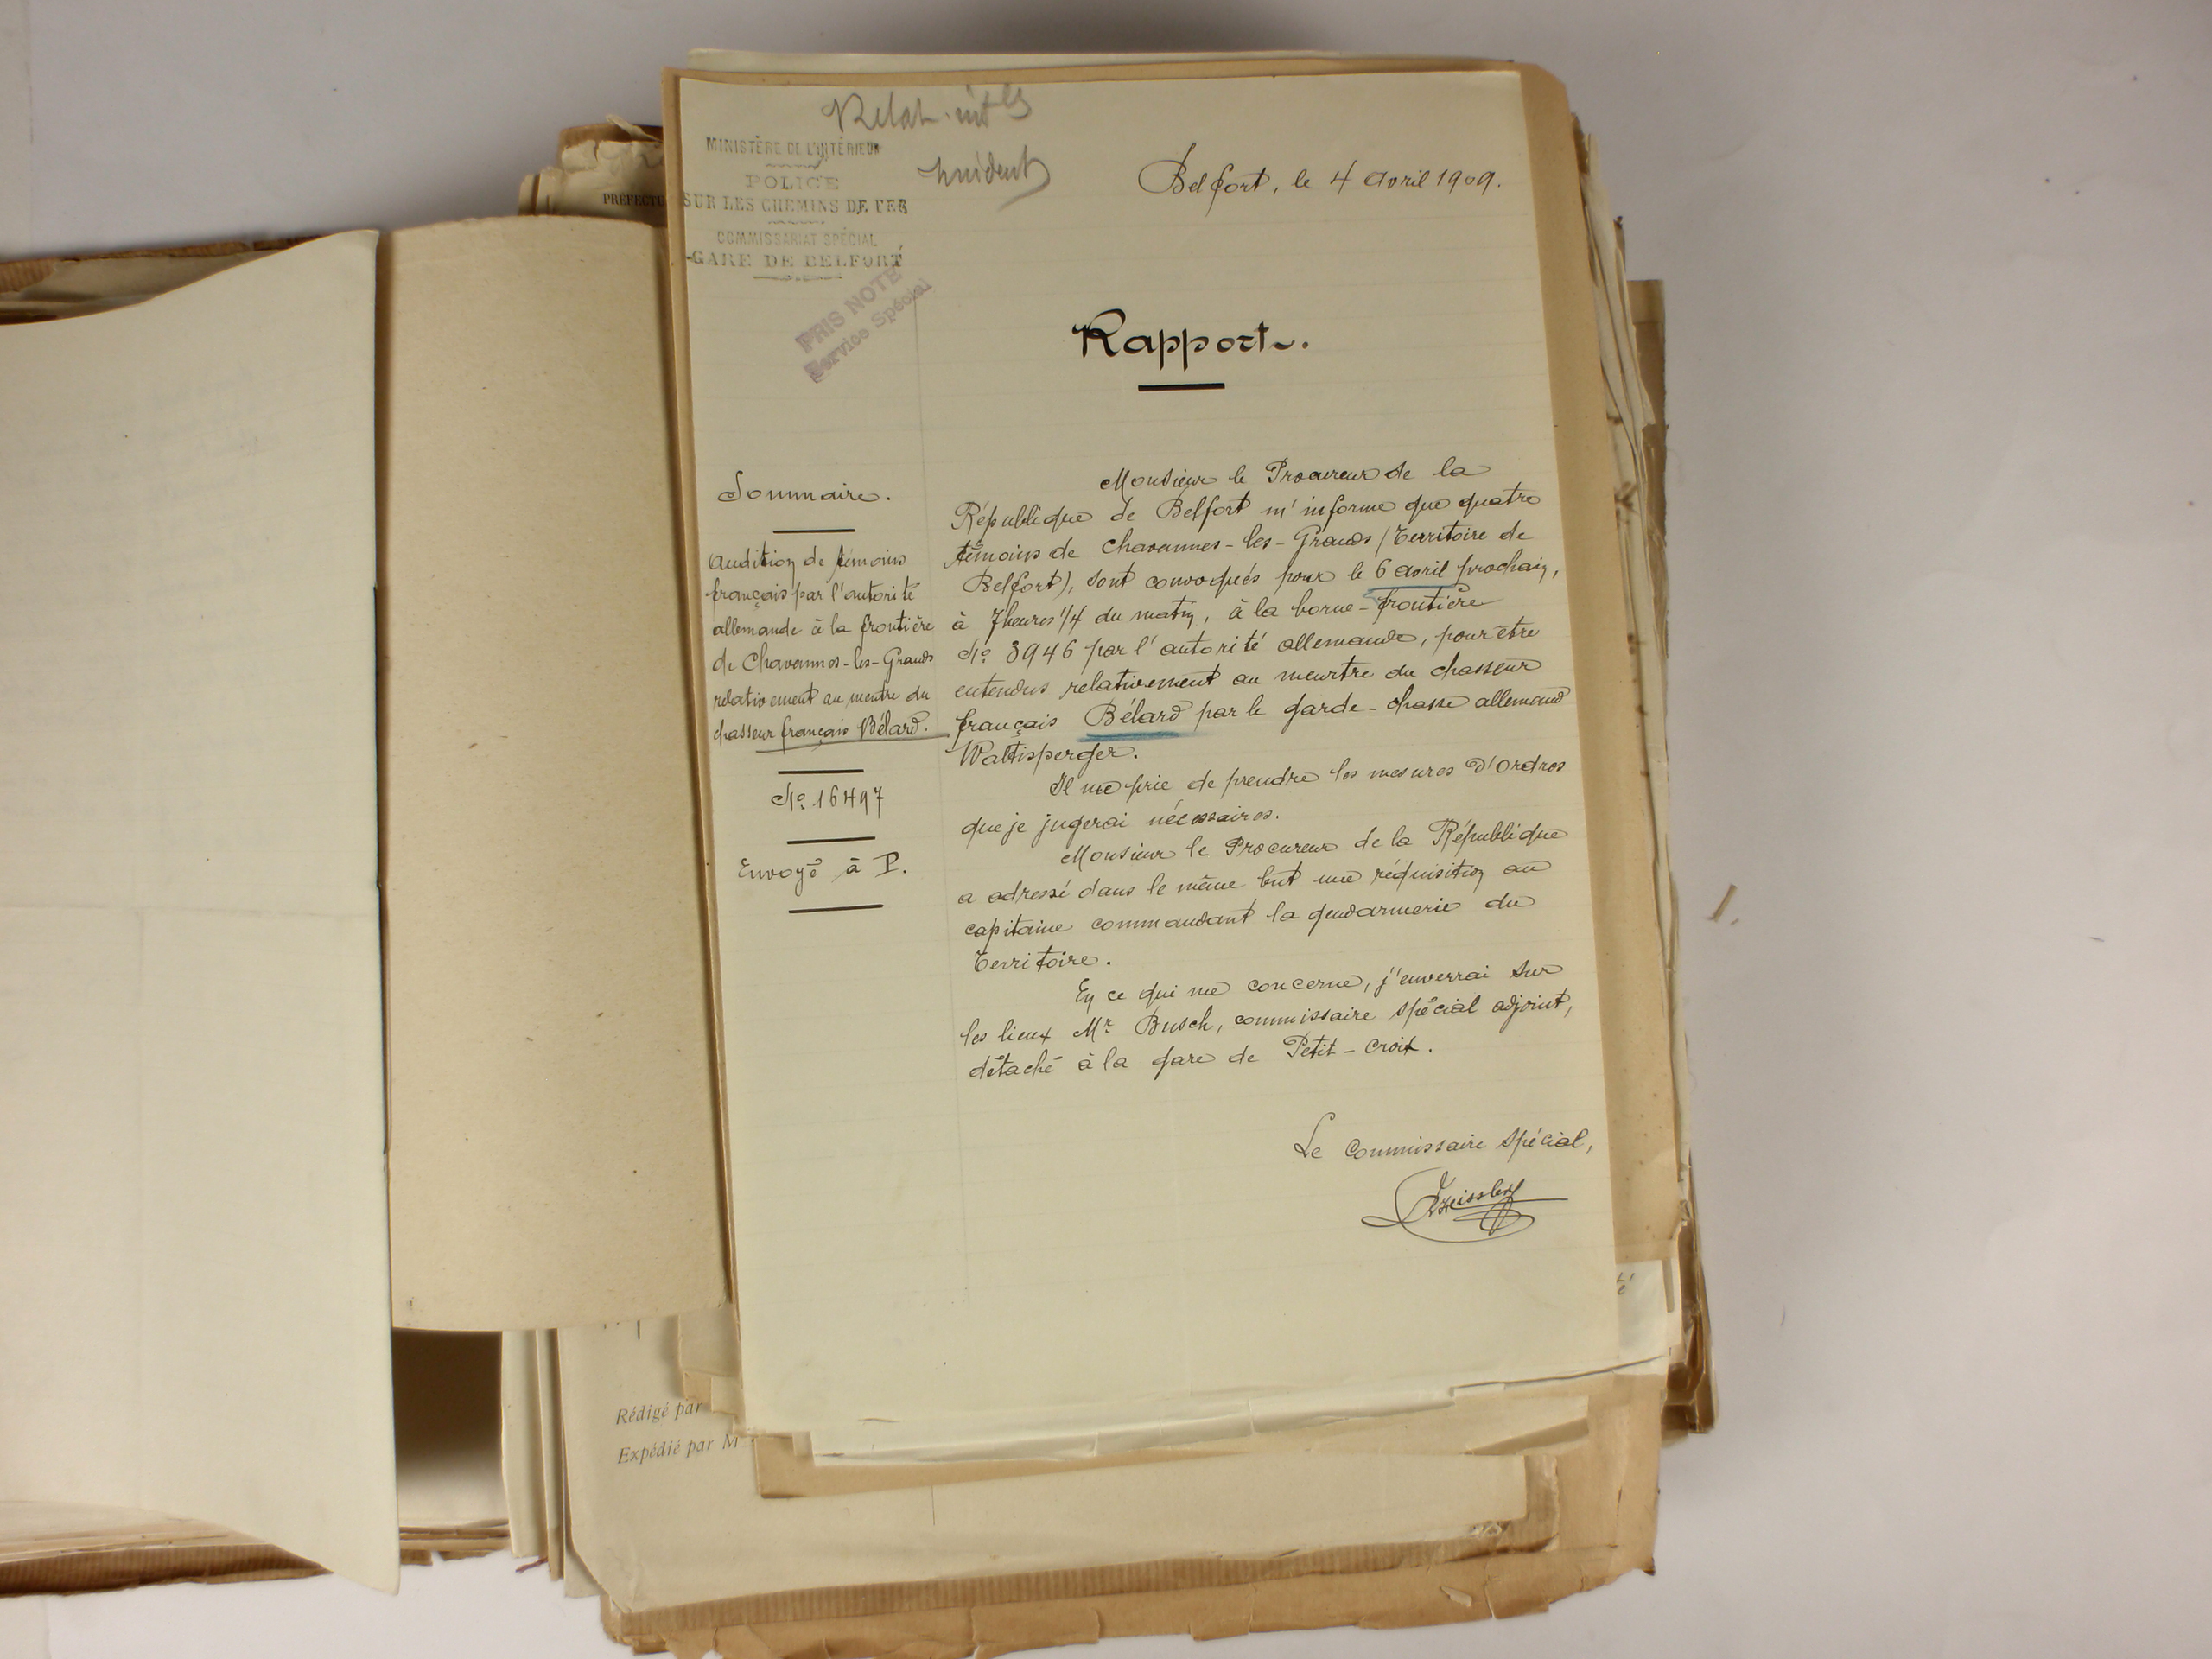 Relat. intles
Incident
MINISTÈRE DE L'INTÉRIEUR
POLICE
SUR LES CHEMINS DE FER
COMMISSARIAT SPÉCIAL
GARE DE BELFORT
PRIS NOTE
Service Spécial
PRÉFECTU
Belfort, le 4 avril 1909.
Rapport.
Sommaire.
Audition de témoins
français par l'autorité
allemande à la frontière
de Chavannes-les-Grands
relativement au meutre du
chasseur français Bélard.
No 16497
Envoyé à P.
Monsieur le Procureur de la
République de Belfort m'informe que quatre
témoins de Chavannes-les-Grands (Territoire de
Belfort), sont convoqués pour le 6 avril prochain,
à 7 heures 1/4 du matin, à la borne-frontière
No 3946 par l'autorité allemande, pour être
entendus relativement au meurtre du chasseur
français Bélard par le garde-chasse allemand
Waltisperger.
Il me prie de prendre les mesures d'ordres
que je jugerai nécessaires.
Monsieur le Procureur de la République
a adressé dans le même but une réquisition au
capitaine commandant la gendarmerie du
Territoire.
En ce qui me concerne, j'enverrai sur
les lieux Mr Busch, commissaire spécial adjoint,
détaché à la gare de Petit-Croix.
Le Commissaire spécial,
Rédigé par
Expédié par M